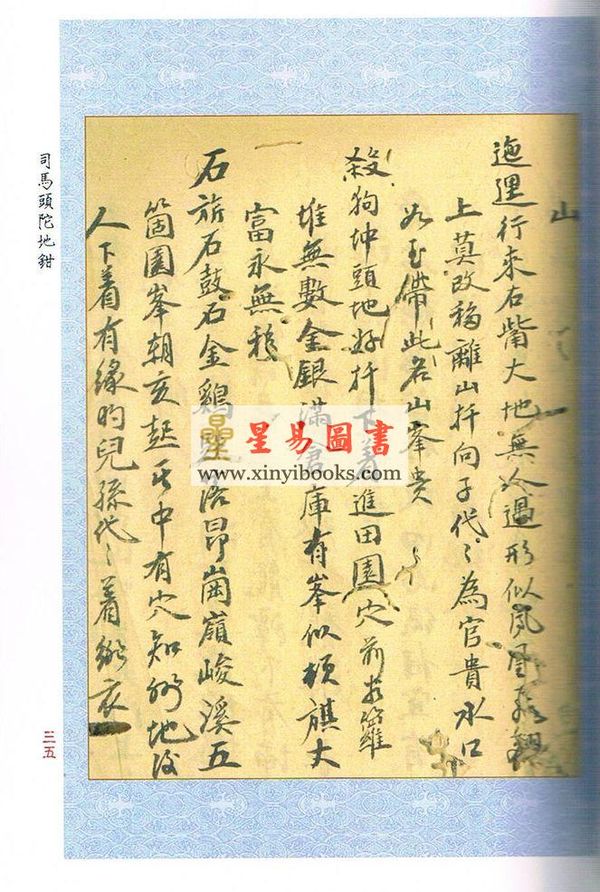 山
迤邐行來右嘴大地無人遇形似鳳凰
上莫改移離山扦向子代〻為官貴水口
如玉帶此名山峯貴
殺狗坤頭地好扦 下着 進田園穴前 籮
堆無數金銀滿倉庫有峯似頓旗大
富永無移
石旂石鼓石金鷄 洛昂崗嶺峻溪五
箇圓峯朝亥起 中有穴知 地
人下着有緣的兒孫代〻着 衣
司馬頭陀地鉗
三五
星易圖書
www.xinyibooks.com